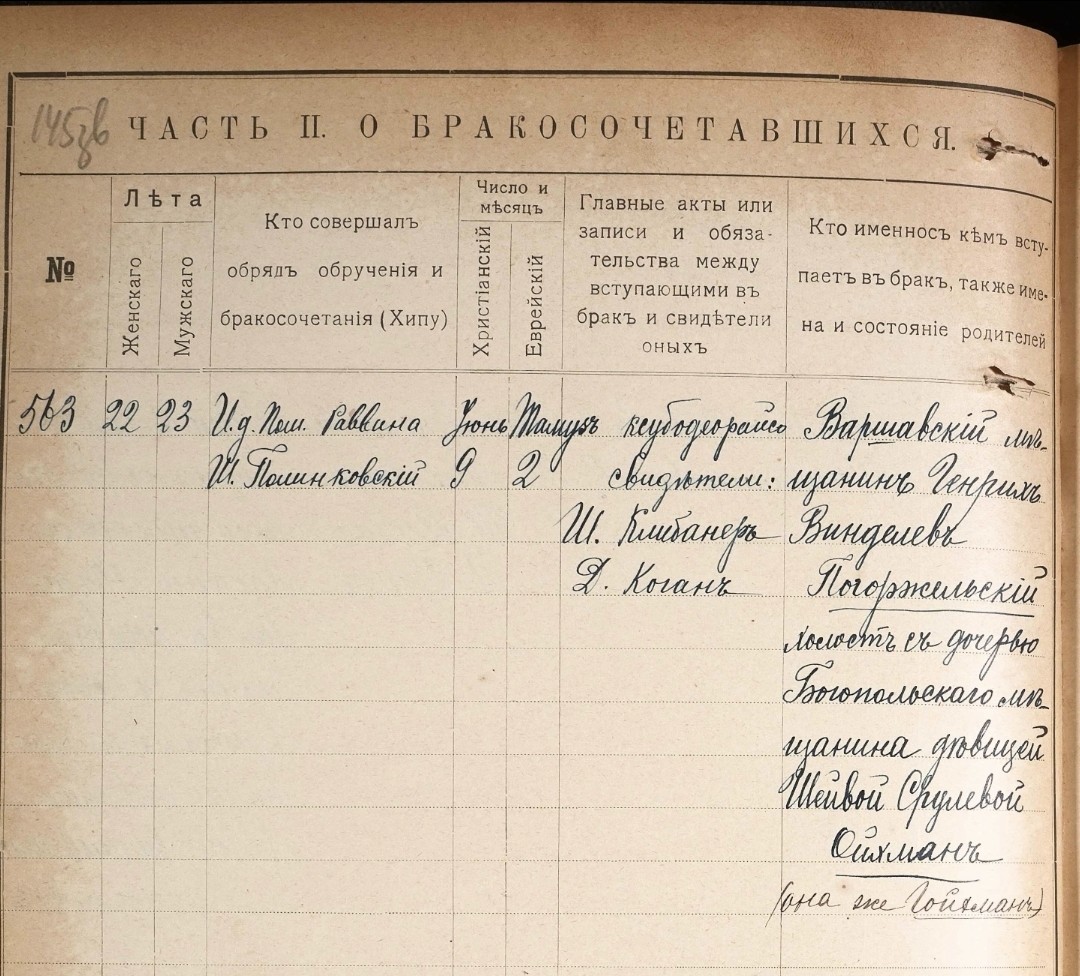 145зв
ЧАСТЬ II. О БРАКОСОЧЕТАВШИХСЯ.
№
Лѣта
Женскаго
Мужскаго
Кто совершалъ
обрядъ обрученія и
бракосочетанія (Хипу)
Число и
мѣсяцъ
Христіанскій
Еврейскій
Главные акты или
записи и обяза-
тельства между
вступающими въ
бракъ и свидѣтели
оныхъ
Кто именносъ кѣмъ всту-
паетъ въ бракъ, также име-
на и состояніе родителей
563
22
23
И.д. Пом. Раввина
Ш. Полинковскій
Іюнь
9
Тамузъ
2
ксубодеорайсо
свидѣтели:
Ш. Клибанеръ
Д. Коганъ
Варшавскій мѣ-
щанинъ Генрихъ
Винделевъ
Погоржельскій
холостъ съ дочерью
Богопольскаго мѣ-
щанина дѣвицей
Шейвой Срулевой
Ойхманъ
(она же Гойхманъ)